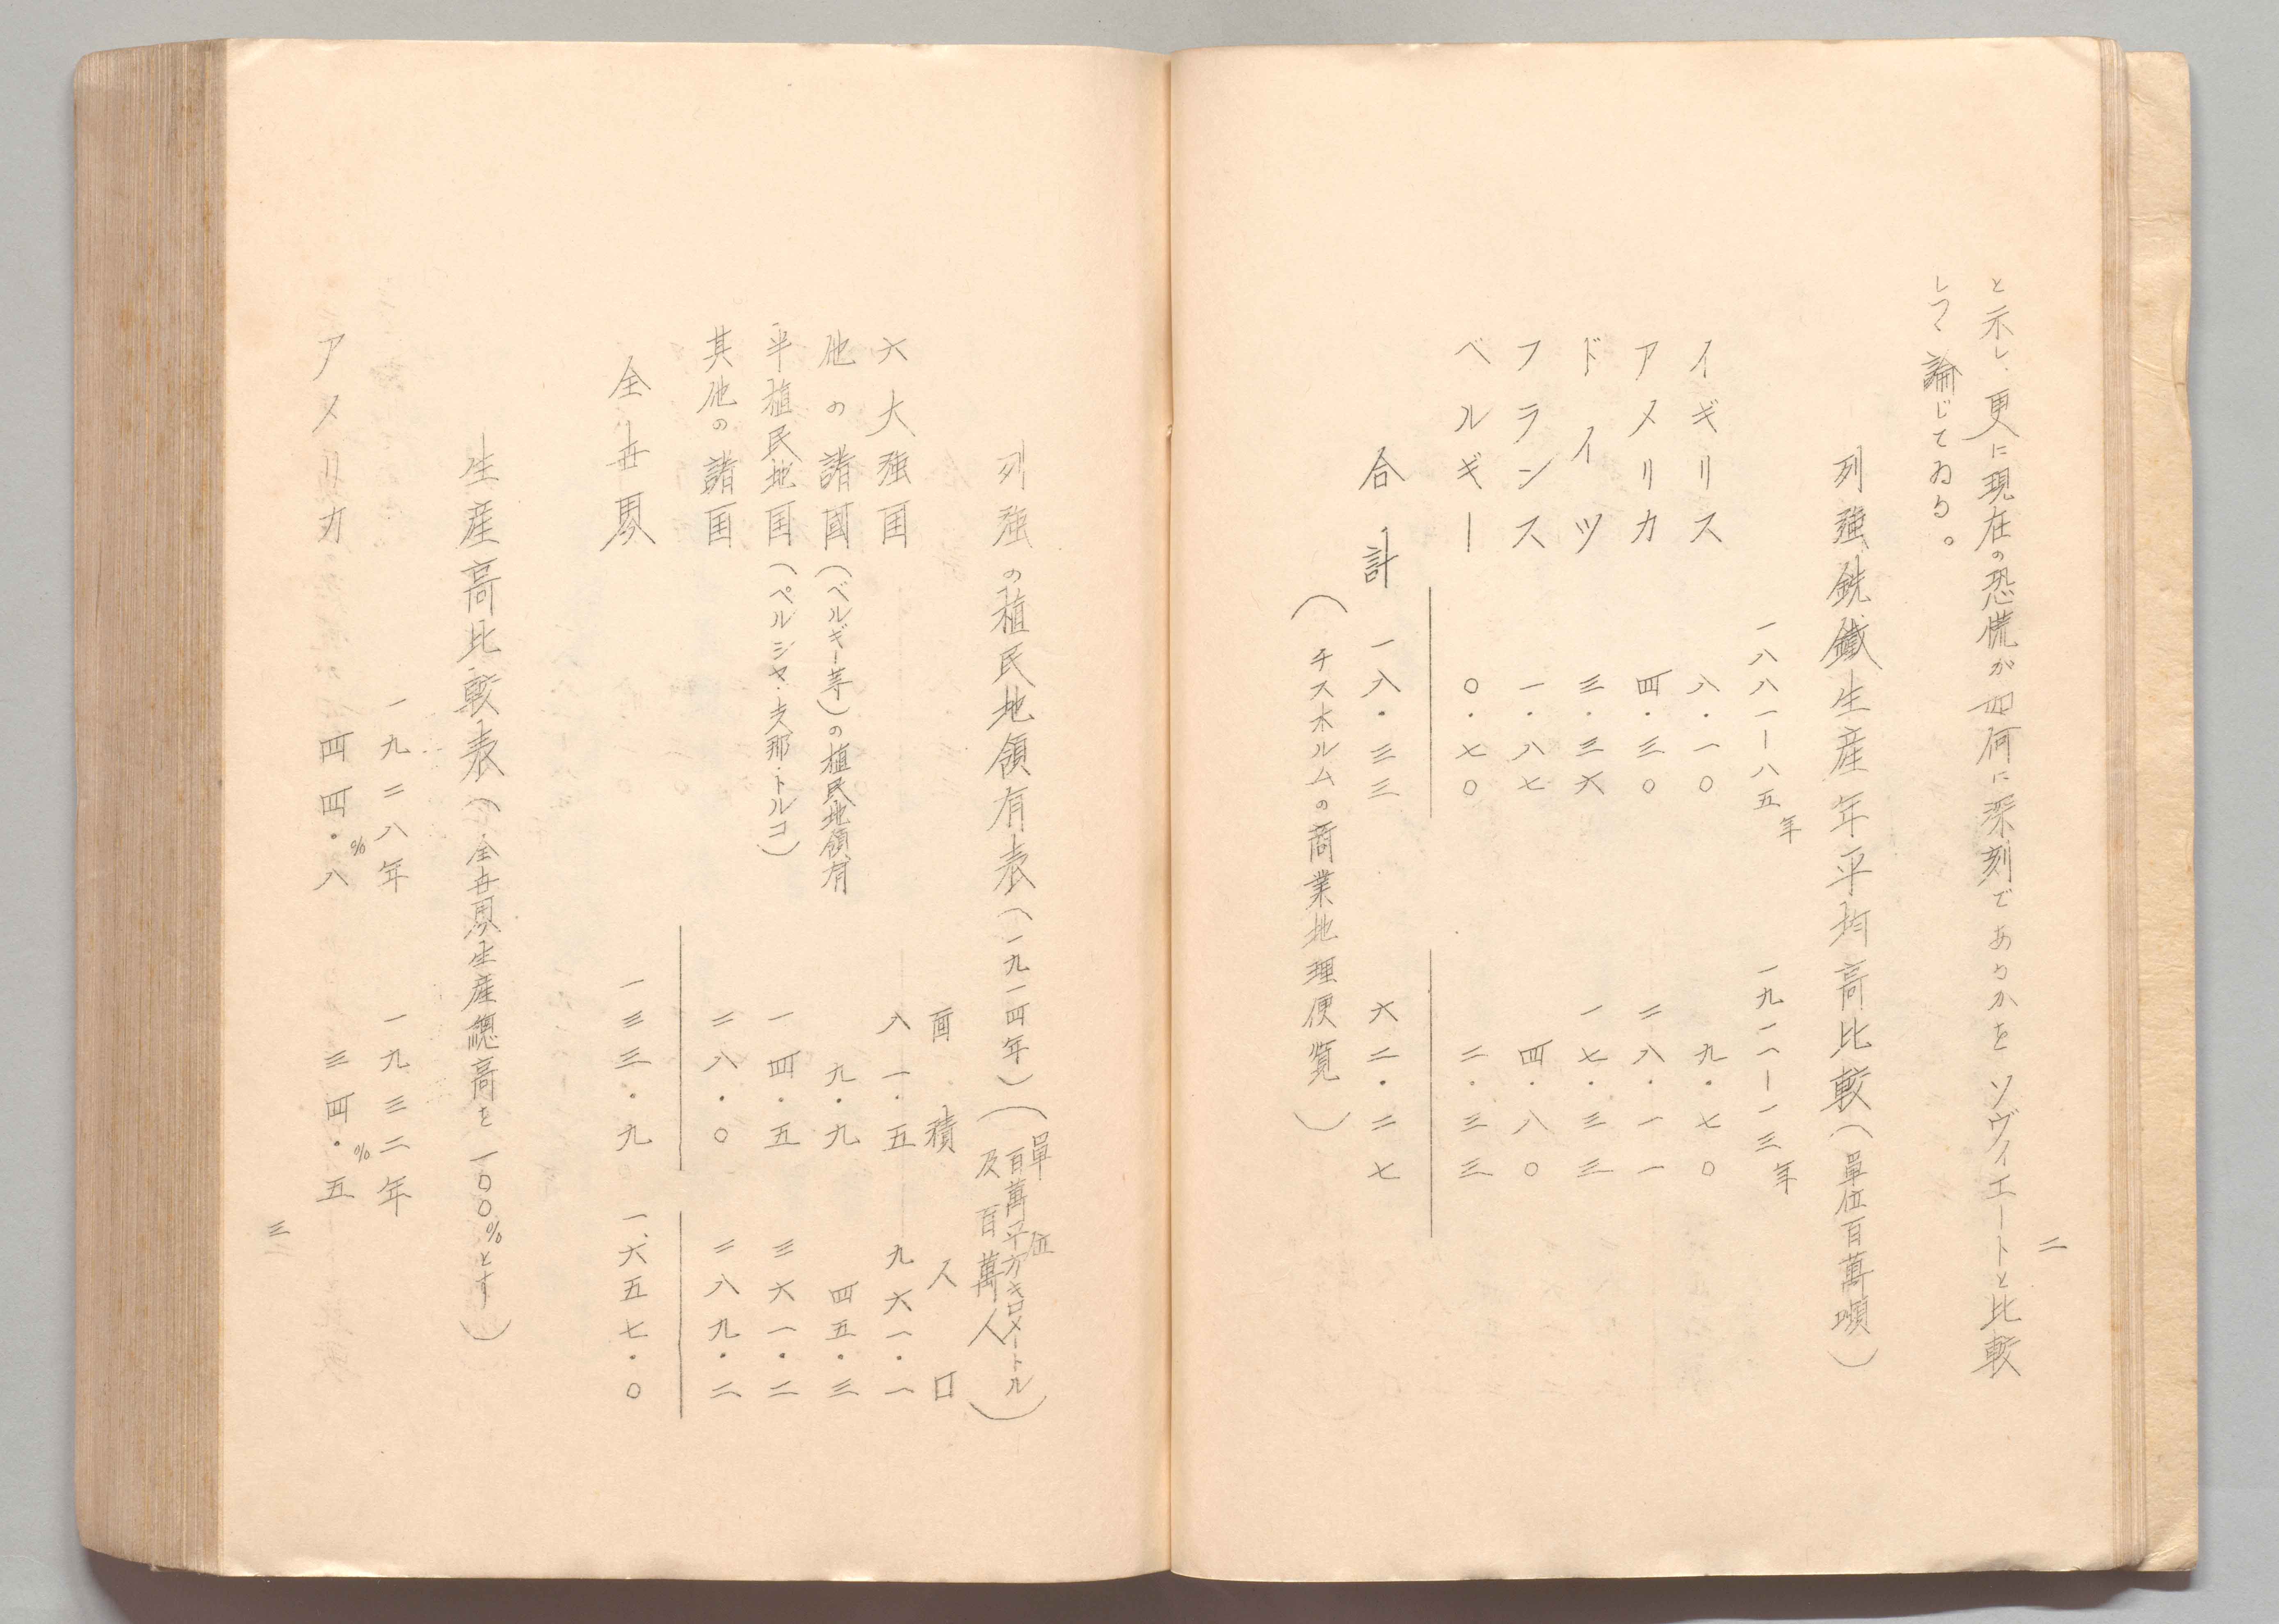 二
と示し、更に現在の恐慌が如何に深刻であるかをソヴィエートと比較
しつゝ論じてゐる。
列強銑鐵生産年平均高比較（單位百萬噸）
一八八一ー八五年 一九一一ー一三年
イギリス 八・一〇 九・七〇
アメリカ 四・三〇 二八・一一
ドイツ 三・三六 一七・三三
フランス 一・八七 四・八〇
ベルギー 〇・七〇 二・三三
合計 一八・三三 六二・二七
（チスホルムの商業地理便覧）
列強の植民地領有表（一九一四年）（單位百萬平方キロメートル及百萬人）
面積 人口
六大強国 八一・五 九六一・一
他の諸國（ベルギー等）の植民地領有 九・九 四五・三
半植民地国（ペルシヤ・支那・トルコ） 一四・五 三六一・二
其他の諸国 二八・〇 二八九・二
全世界 一三三・九 一、六五七・〇
生産高比較表（全世界生産總高を一〇〇%とす）
一九二八年 一九三二年
アメリカ 四四・八% 三四・五%
三